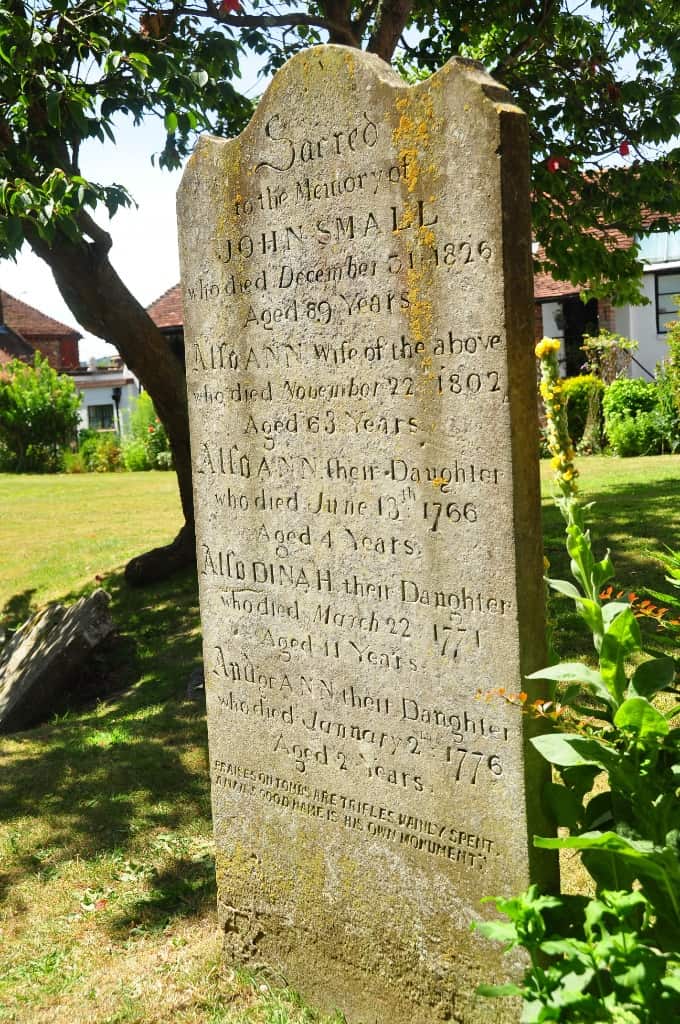 Sacred
to the Memory of
JOHN SMALL
who died December 31. 1826
Aged 89 Years.
Also ANN Wife of the above
who died November 22. 1802.
Aged 63 Years.
Also ANN, their Daughter
who died June 13th 1766
Aged 4 Years.
Also DINAH, their Daughter
who died March 22 1771
Aged 11 Years.
And of ANN, their Daughter
who died January 2d 1776
Aged 2 Years.
PRAISES ON TOMBS ARE TRIFLES VAINLY SPENT,
A MAN'S GOOD NAME IS HIS OWN MONUMENT;